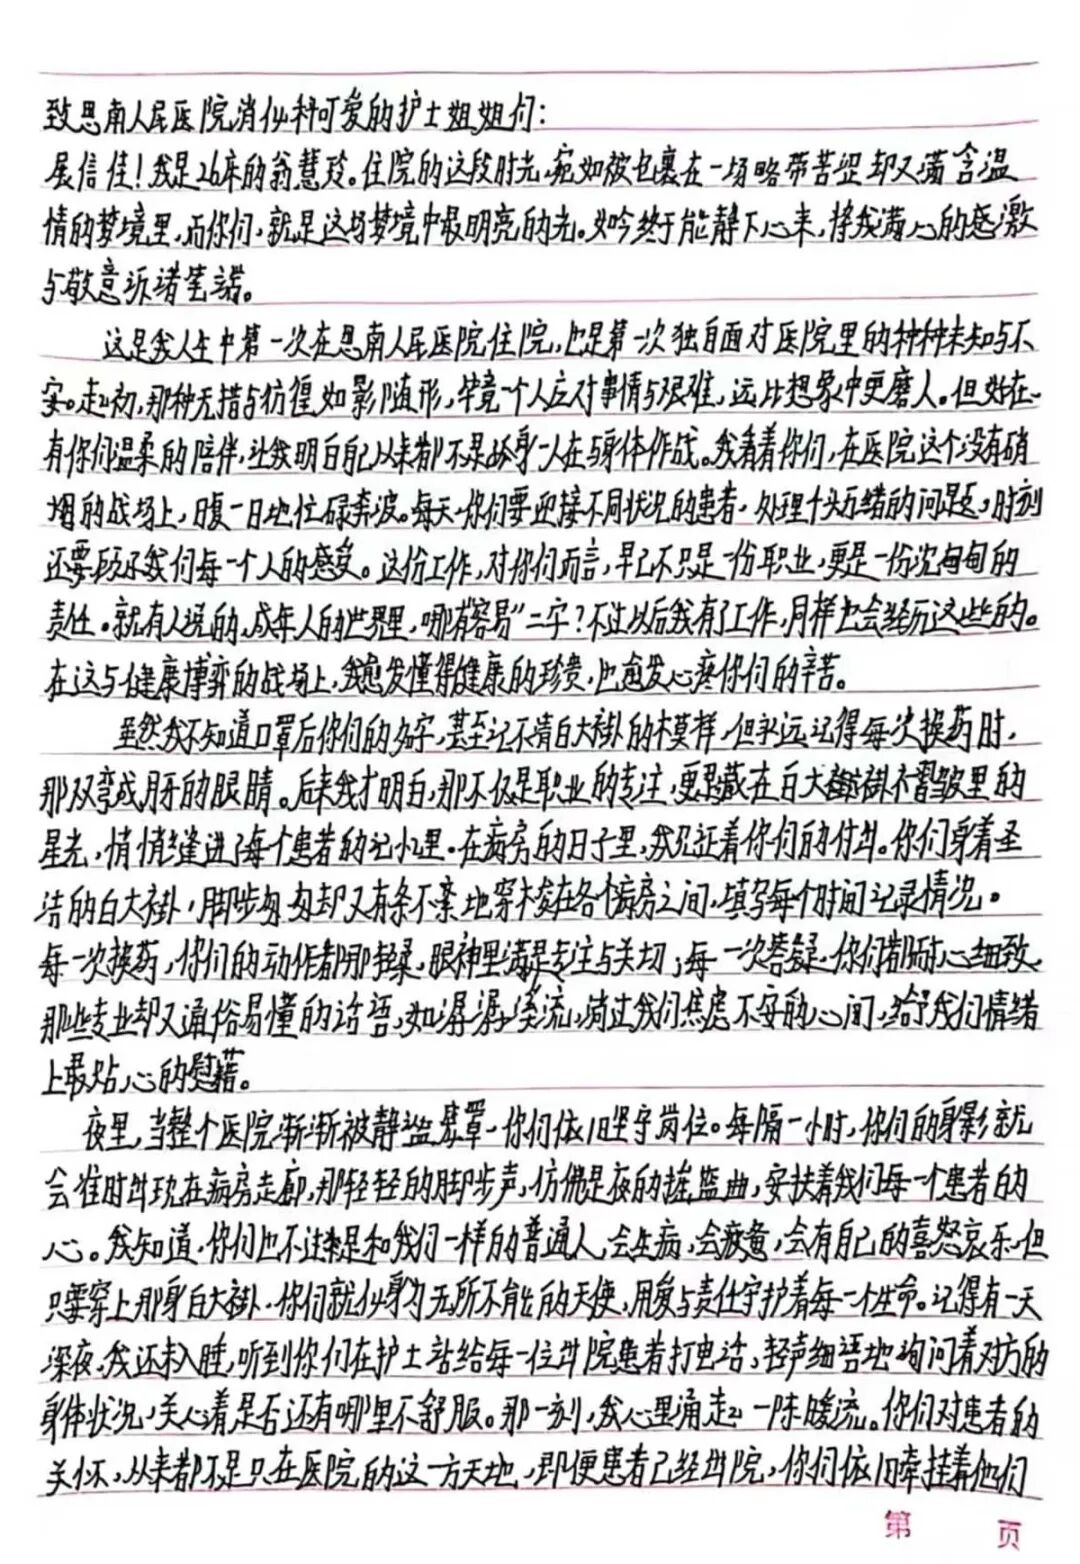 致思南人民医院消化科可爱的护士姐姐们：
展信佳！我是26床的翁慧玲。住院的这段时光，宛如被包裹在一场略带苦涩却又满含温
情的梦境里，而你们，就是这场梦境中最明亮的光。如今终于能静下心来，将我满心的感激
与敬意诉诸笔端。
这是我人生中第一次在思南人民医院住院，也是第一次独自面对医院里的种种未知与不
安。起初，那种无措与彷徨如影随形，毕竟一个人应对事情与艰难，远比想象中更磨人。但好在
有你们温柔的陪伴，让我明白自己从来都不是孤身一人在与身体作战。我看着你们，在医院这个没有硝
烟的战场上，日复一日地忙碌奔波。每天，你们要迎接不同状况的患者，处理千头万绪的问题，时刻
还要顾及我们每一个人的感受。这份工作，对你们而言，早已不只是一份职业，更是一份沉甸甸的
责任。就有人说的，成年人的世界里，哪有"容易"二字？不过以后我有了工作，同样也会经历这些的。
在这与健康博弈的战场上，我愈发懂得健康的珍贵，也愈发心疼你们的辛苦。
虽然我不知道口罩后你们的名字，甚至记不清白大褂的模样，但永远记得每次换药时，
那双弯成月牙的眼睛。后来我才明白，那不仅是职业的专注，更是藏在白大褂褶皱里的
星光，悄悄缝进了每个患者的记忆里。在病房的日子里，我见证着你们的付出。你们身着圣
洁的白大褂，脚步匆匆却又有条不紊地穿梭在各个病房之间，填写每个时间记录情况。
每一次换药，你们的动作都那轻柔，眼神里满是专注与关切；每一次答疑，你们都耐心细致，
那些专业却又通俗易懂的话语，如潺潺溪流，淌过我们焦虑不安的心间，给予我们情绪
上最贴心的慰藉。
夜里，当整个医院渐渐被静谧笼罩，你们依旧坚守岗位。每隔一小时，你们的身影就
会准时出现在病房走廊，那轻轻的脚步声，仿佛是夜的摇篮曲，安抚着我们每一个患者的
心。我知道，你们也不过是和我们一样的普通人，会生病，会疲惫，会有自己的喜怒哀乐。但
只要穿上那身白大褂，你们就化身为无所不能的天使，用爱与责任守护着每一个生命。记得有一天
深夜，我还未入睡，听到你们在护士站给每一位出院患者打电话，轻声细语地询问着对方的
身体状况，关心着是否还有哪里不舒服。那一刻，我心里涌起一阵暖流。你们对患者的
关怀，从来都不是只在医院的这一方天地，即便患者已经出院，你们依旧牵挂着他们
第 页